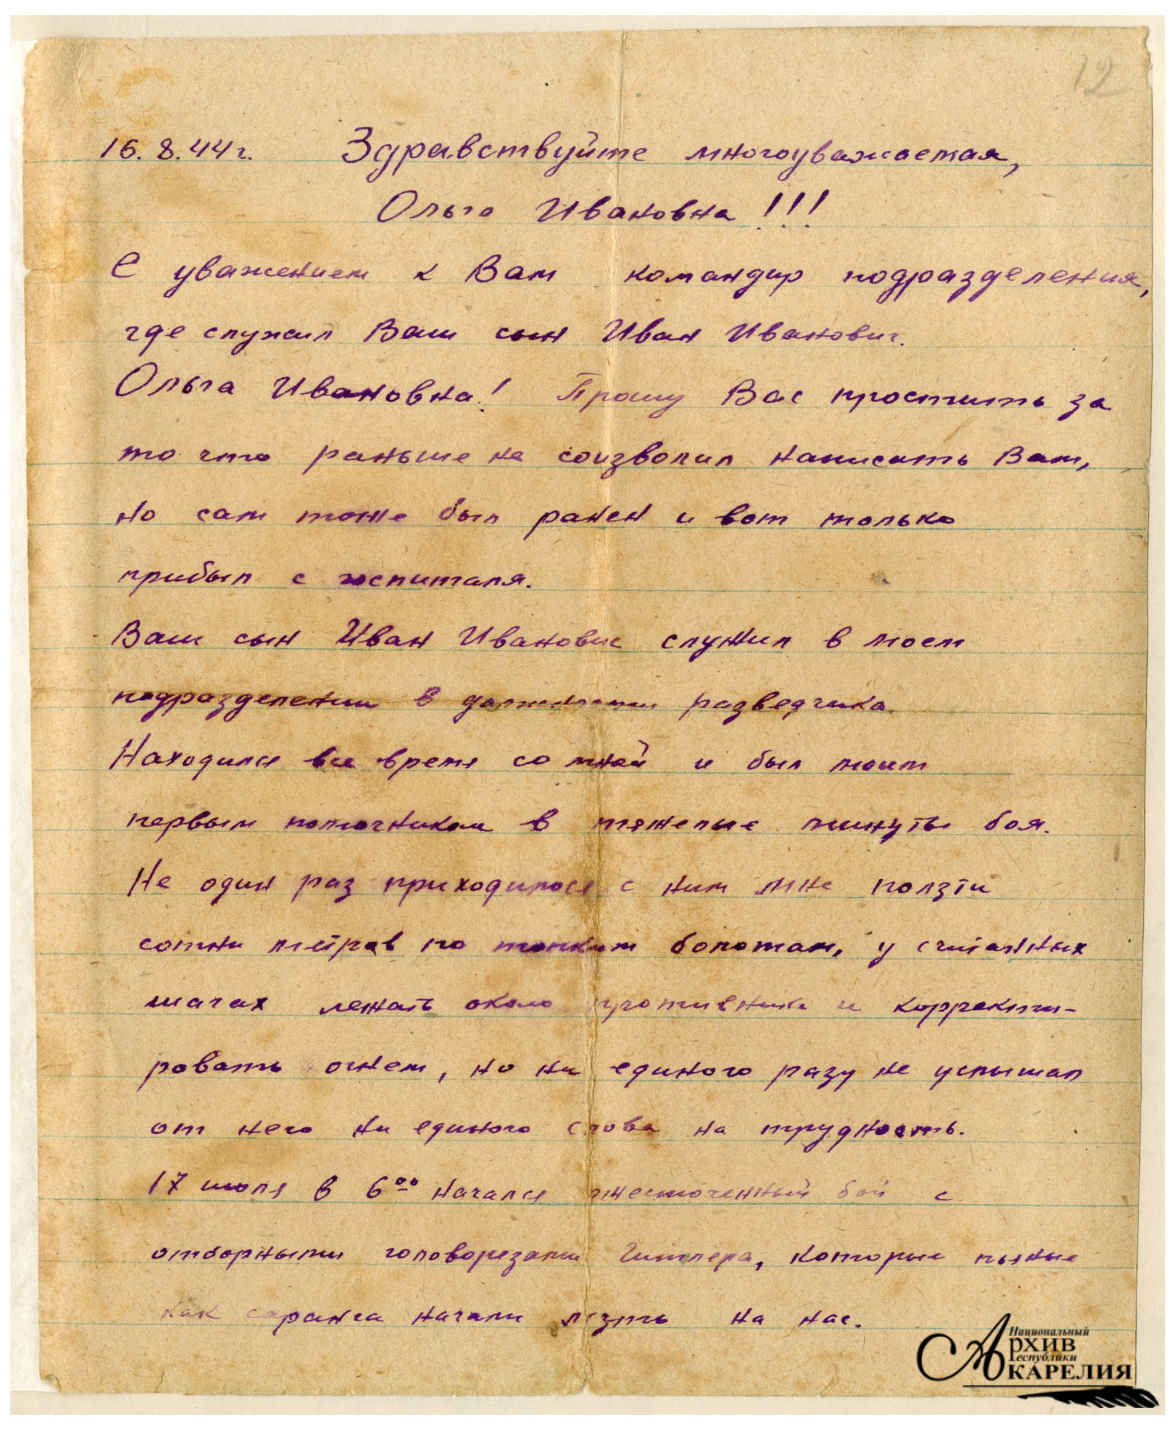 12
16.8.44г. Здравствуйте многоуважаемая,
Ольга Ивановна!!!
С уважением к Вам командир подразделения,
где служил Ваш сын Иван Иванович.
Ольга Ивановна! Прошу Вас простить за
то что раньше не соизволил написать Вам,
но сам тоже был ранен и вот только
прибыл с госпиталя.
Ваш сын Иван Иванович служил в моем
подразделении в должности разведчика.
Находился все время со мной и был моим
первым помочником в тяжелые минуты боя.
Не один раз приходилось с ним мне ползти
сотни метров по топким болотам, у считанных
шагах лежать около противника и корректи-
ровать огнем, но ни единого разу не услышал
от него ни единого слова на трудность.
17 июля в 6⁰⁰ начался ожесточенный бой с
отборными головорезами Гитлера, которые пьяные
как саранча начали лезть на нас.
Национальный
АРХИВ
Республики
КАРЕЛИЯ